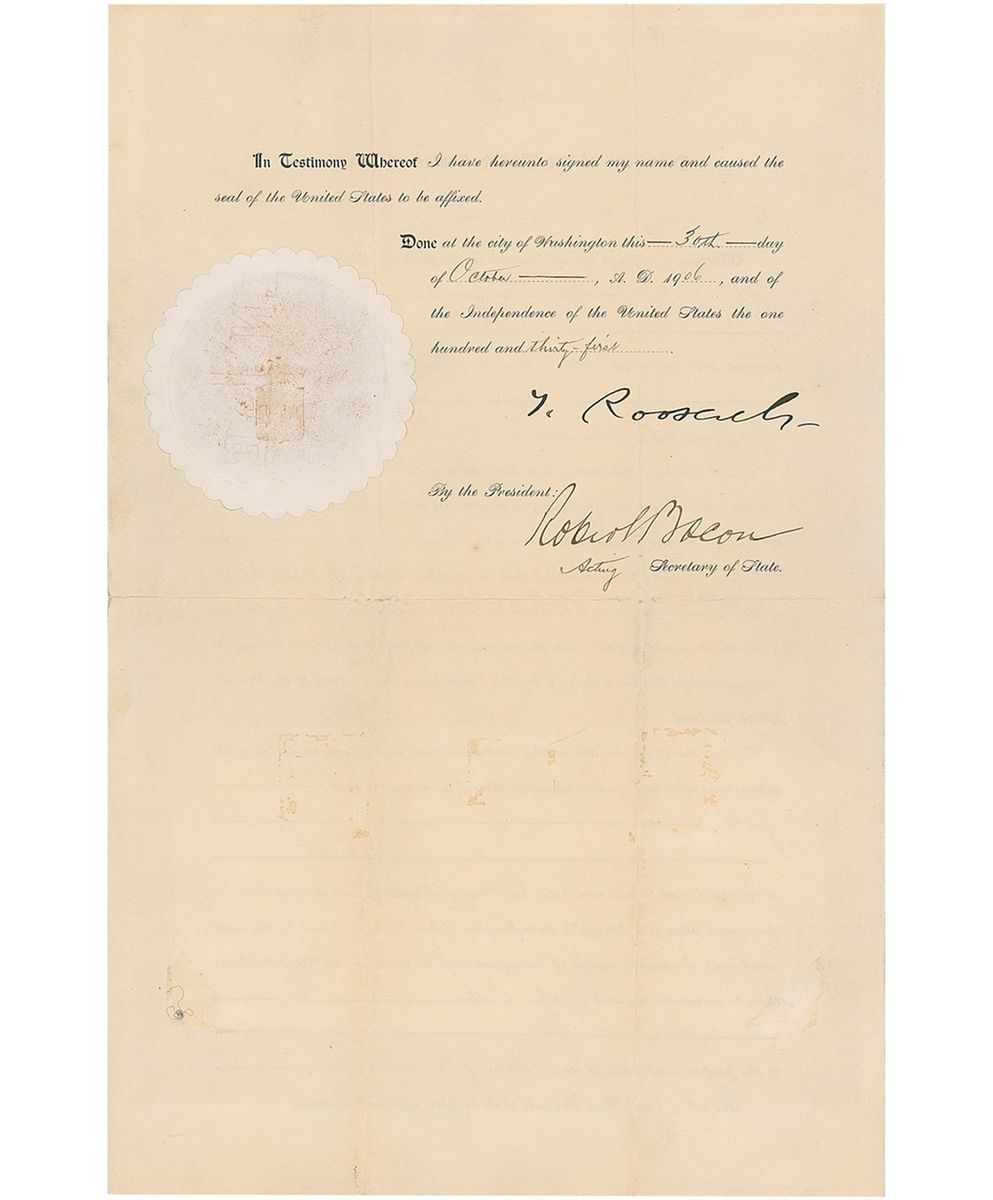 In Testimony Whereof I have hereunto signed my name and caused the
seal of the United States to be affixed.
Done at the city of Washington this 30th day
of October, A. D. 1906, and of
the Independence of the United States the one
hundred and thirty-first.
T. Roosevelt
By the President:
Robert Bacon
Acting Secretary of State.